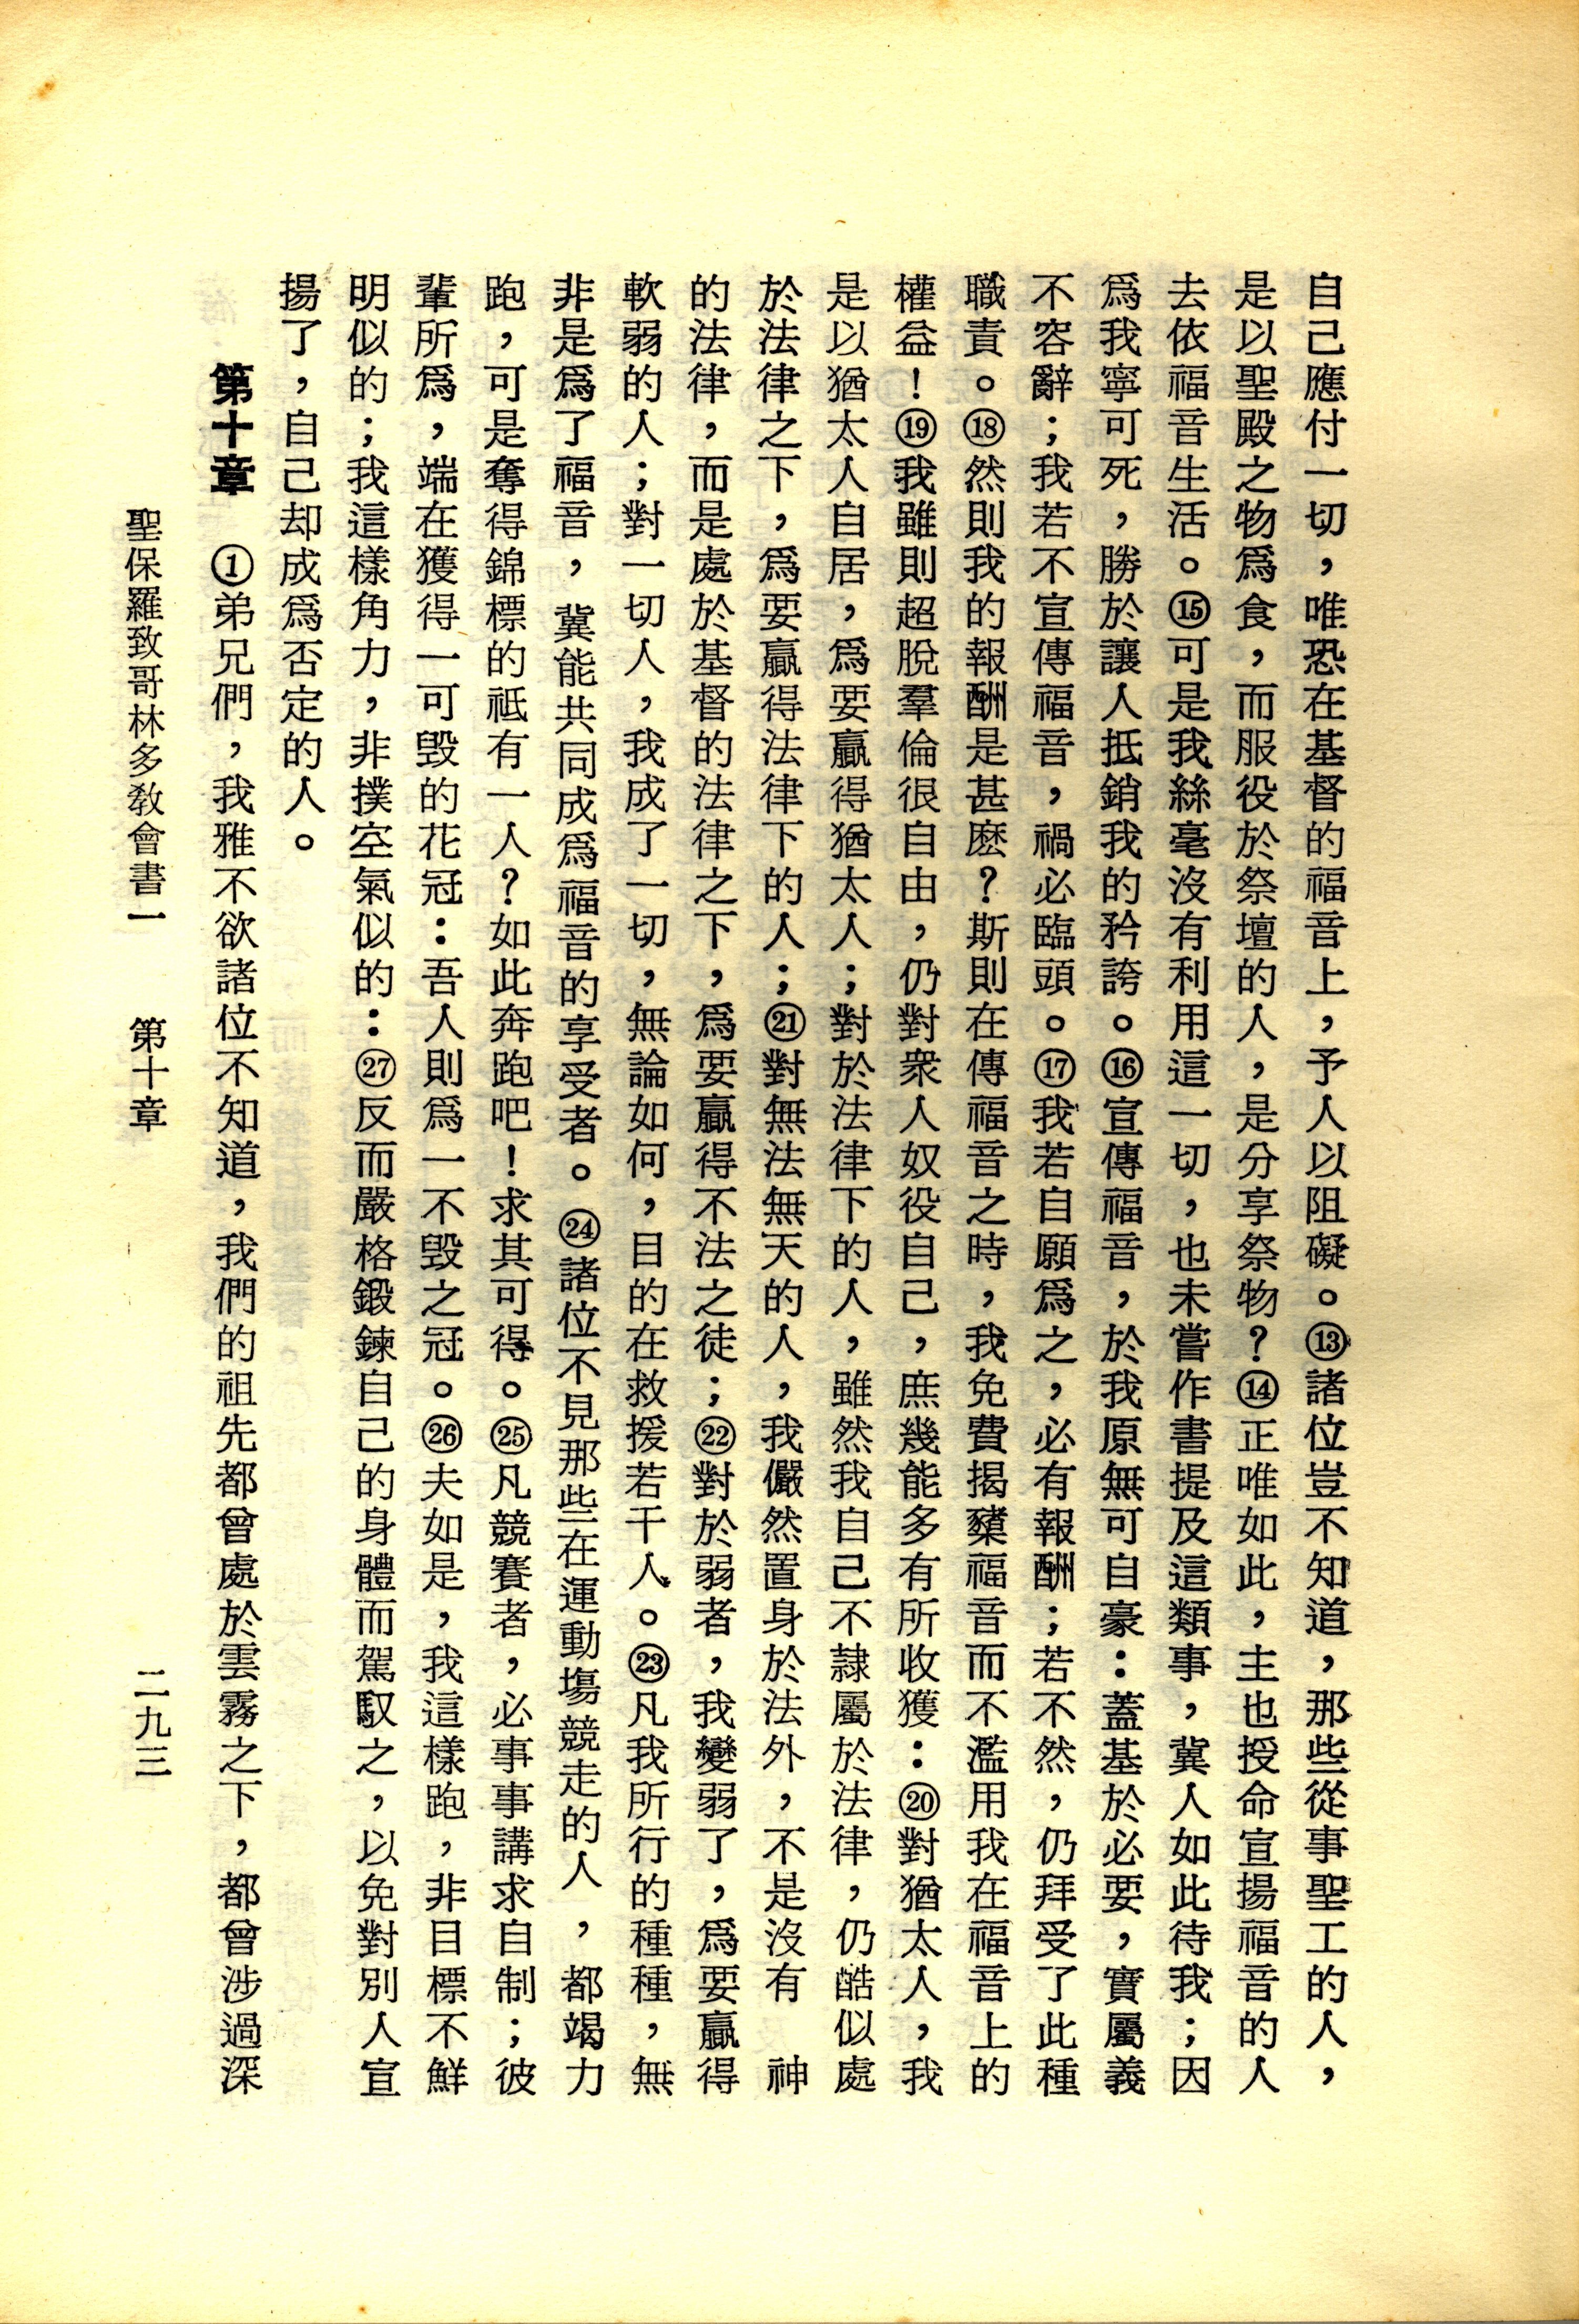 自己應付一切，唯恐在基督的福音上，予人以阻礙。⑬諸位豈不知道，那些從事聖工的人，
是以聖殿之物爲食，而服役於祭壇的人，是分享祭物？⑭正唯如此，主也授命宣揚福音的人
去依福音生活。⑮可是我絲毫沒有利用這一切，也未嘗作書提及這類事，冀人如此待我；因
爲我寧可死，勝於讓人抵銷我的矜誇。⑯宣傳福音，於我原無可自豪：蓋基於必要，實屬義
不容辭；我若不宣傳福音，禍必臨頭。⑰我若自願爲之，必有報酬；若不然，仍拜受了此種
職責。⑱然則我的報酬是甚麽？斯則在傳福音之時，我免費揭櫫福音而不濫用我在福音上的
權益！⑲我雖則超脫羣倫很自由，仍對衆人奴役自己，庶幾能多有所收獲：⑳對猶太人，我
是以猶太人自居，爲要贏得猶太人；對於法律下的人，雖然我自己不隷屬於法律，仍酷似處
於法律之下，爲要贏得法律下的人；㉑對無法無天的人，我儼然置身於法外，不是沒有　神
的法律，而是處於基督的法律之下，爲要贏得不法之徒；㉒對於弱者，我變弱了，爲要贏得
軟弱的人；對一切人，我成了一切，無論如何，目的在救援若干人。㉓凡我所行的種種，無
非是爲了福音，冀能共同成爲福音的享受者。㉔諸位不見那些在運動塲競走的人，都竭力
跑，可是奪得錦標的祗有一人？如此奔跑吧！求其可得。㉕凡競賽者，必事事講求自制；彼
輩所爲，端在獲得一可毀的花冠：吾人則爲一不毀之冠。㉖夫如是，我這樣跑，非目標不鮮
明似的；我這樣角力，非撲空氣似的：㉗反而嚴格鍛鍊自己的身體而駕馭之，以免對別人宣
揚了，自己却成爲否定的人。
第十章　①弟兄們，我雅不欲諸位不知道，我們的祖先都曾處於雲霧之下，都曾涉過深
聖保羅致哥林多敎會書一　第十章　二九三